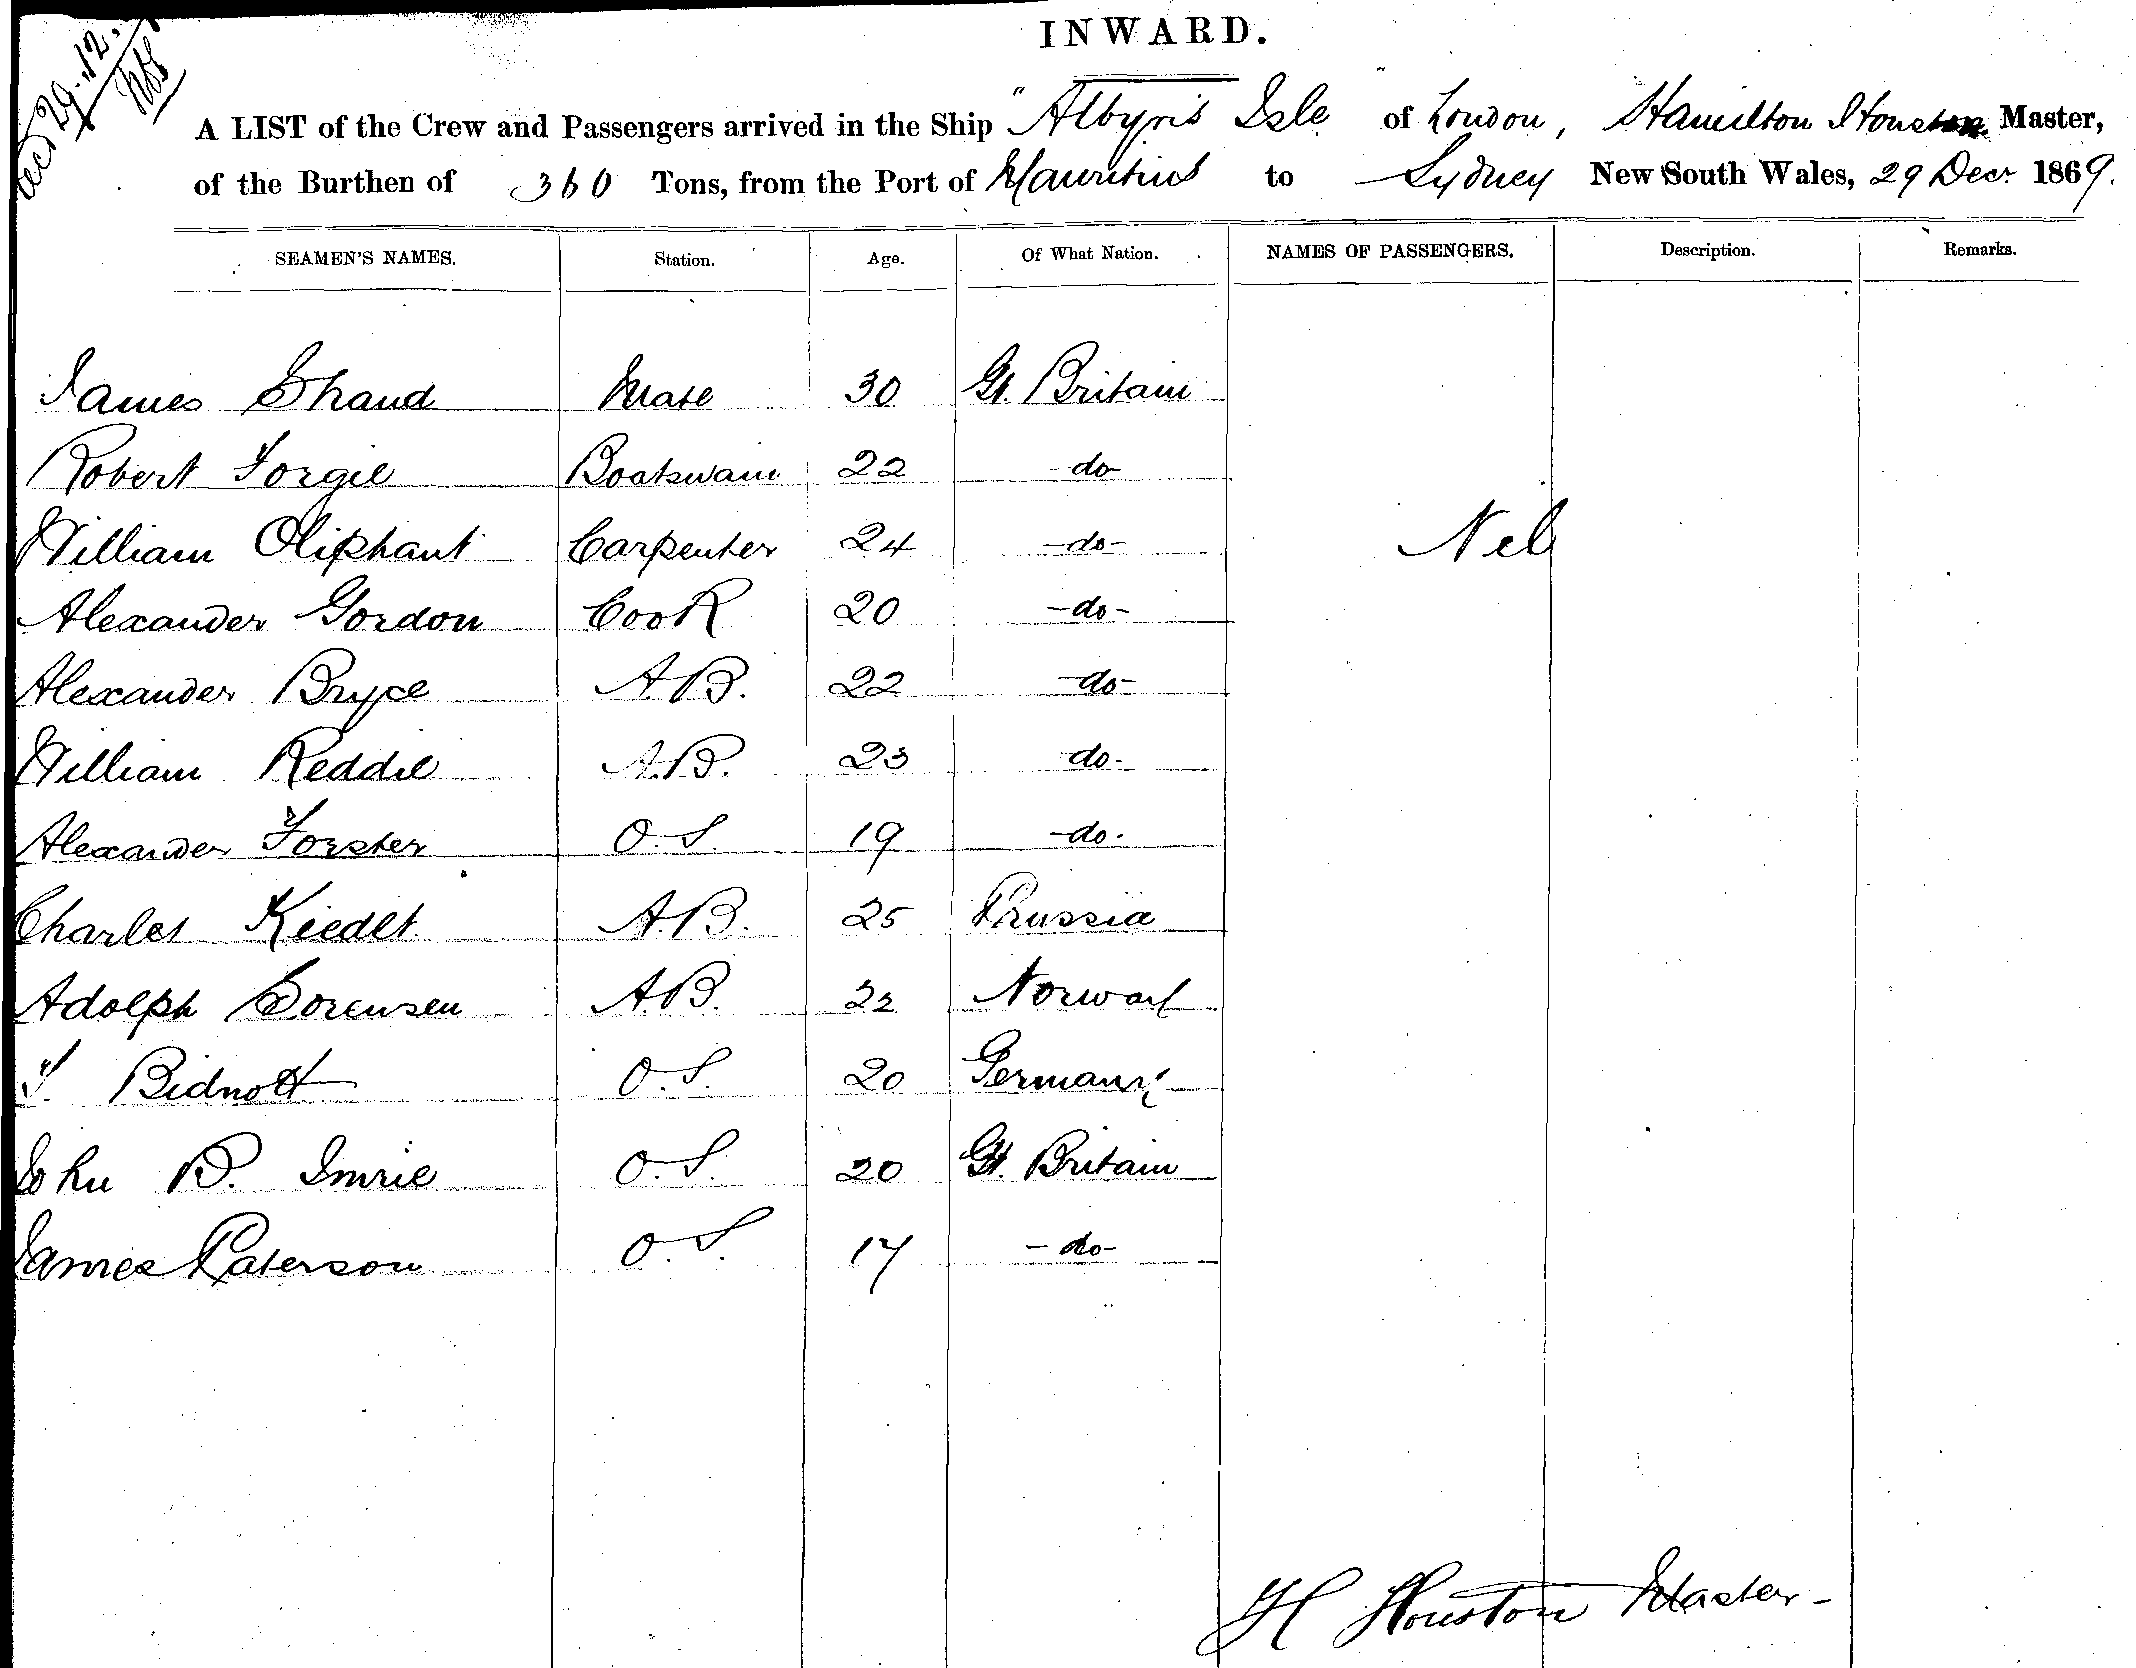 29.12.
INWARD.
A LIST of the Crew and Passengers arrived in the Ship "Albyn's Isle" of London, Hamilton Houston Master,
of the Burthen of 360 Tons, from the Port of Mauritius to Sydney New South Wales, 29 Decr 1869.
SEAMEN'S NAMES. Station. Age. Of What Nation. NAMES OF PASSENGERS. Description. Remarks.
James Shand Mate 30 Gt. Britain
Robert Forgie Boatswain 22 -do-
William Oliphant Carpenter 24 -do- Nil
Alexander Gordon Cook 20 -do-
Alexander Bryce A.B. 22 -do-
William Reddie A.B. 23 -do-
Alexander Forster O.S. 19 -do-
Charles Kiedet A.B. 25 Prussia
Adolph Sorensen A.B. 22 Norway
Bidnott O.S. 20 Germany
John B. Imrie O.S. 20 Gt. Britain
James Paterson O.S. 17 -do-
H Houston Master-